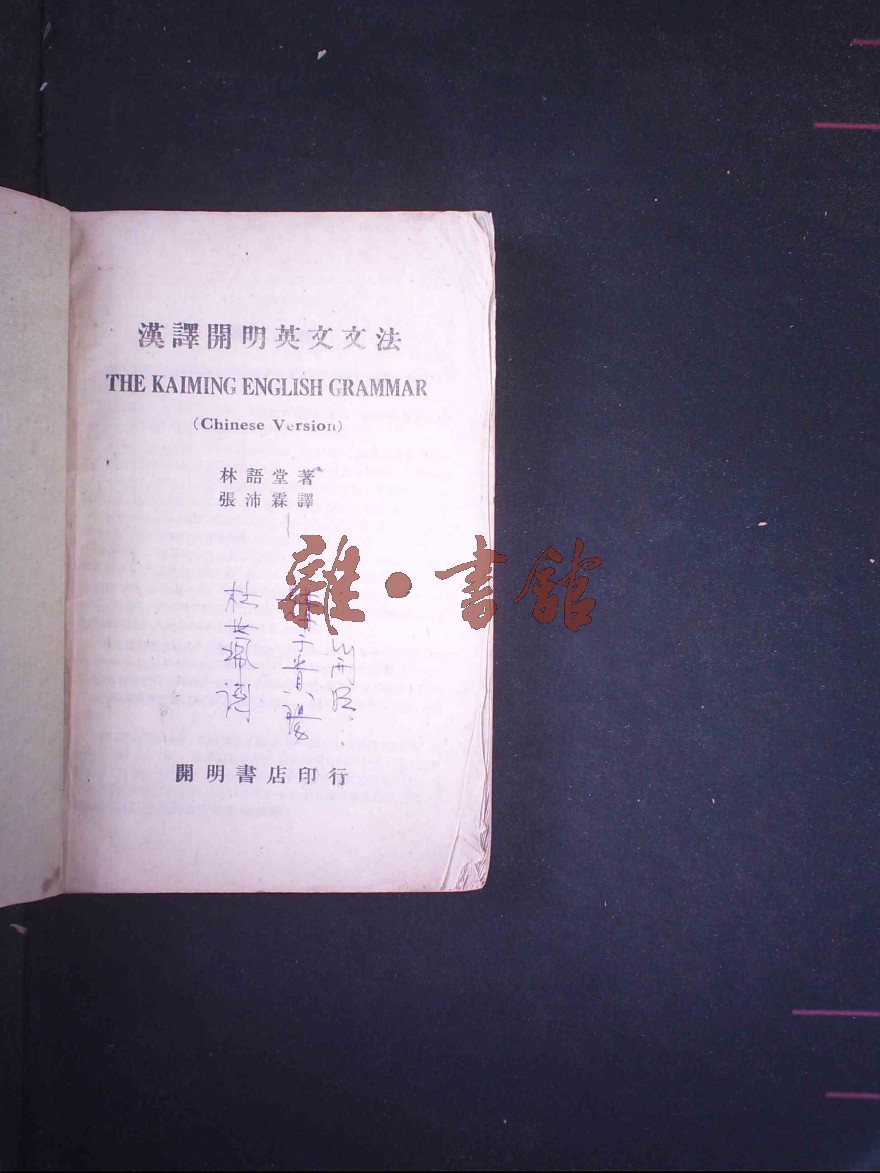 漢譯開明英文文法
THE KAIMING ENGLISH GRAMMAR
(Chinese Version)
林語堂著
張沛霖譯
雜·書館
開明書店印行